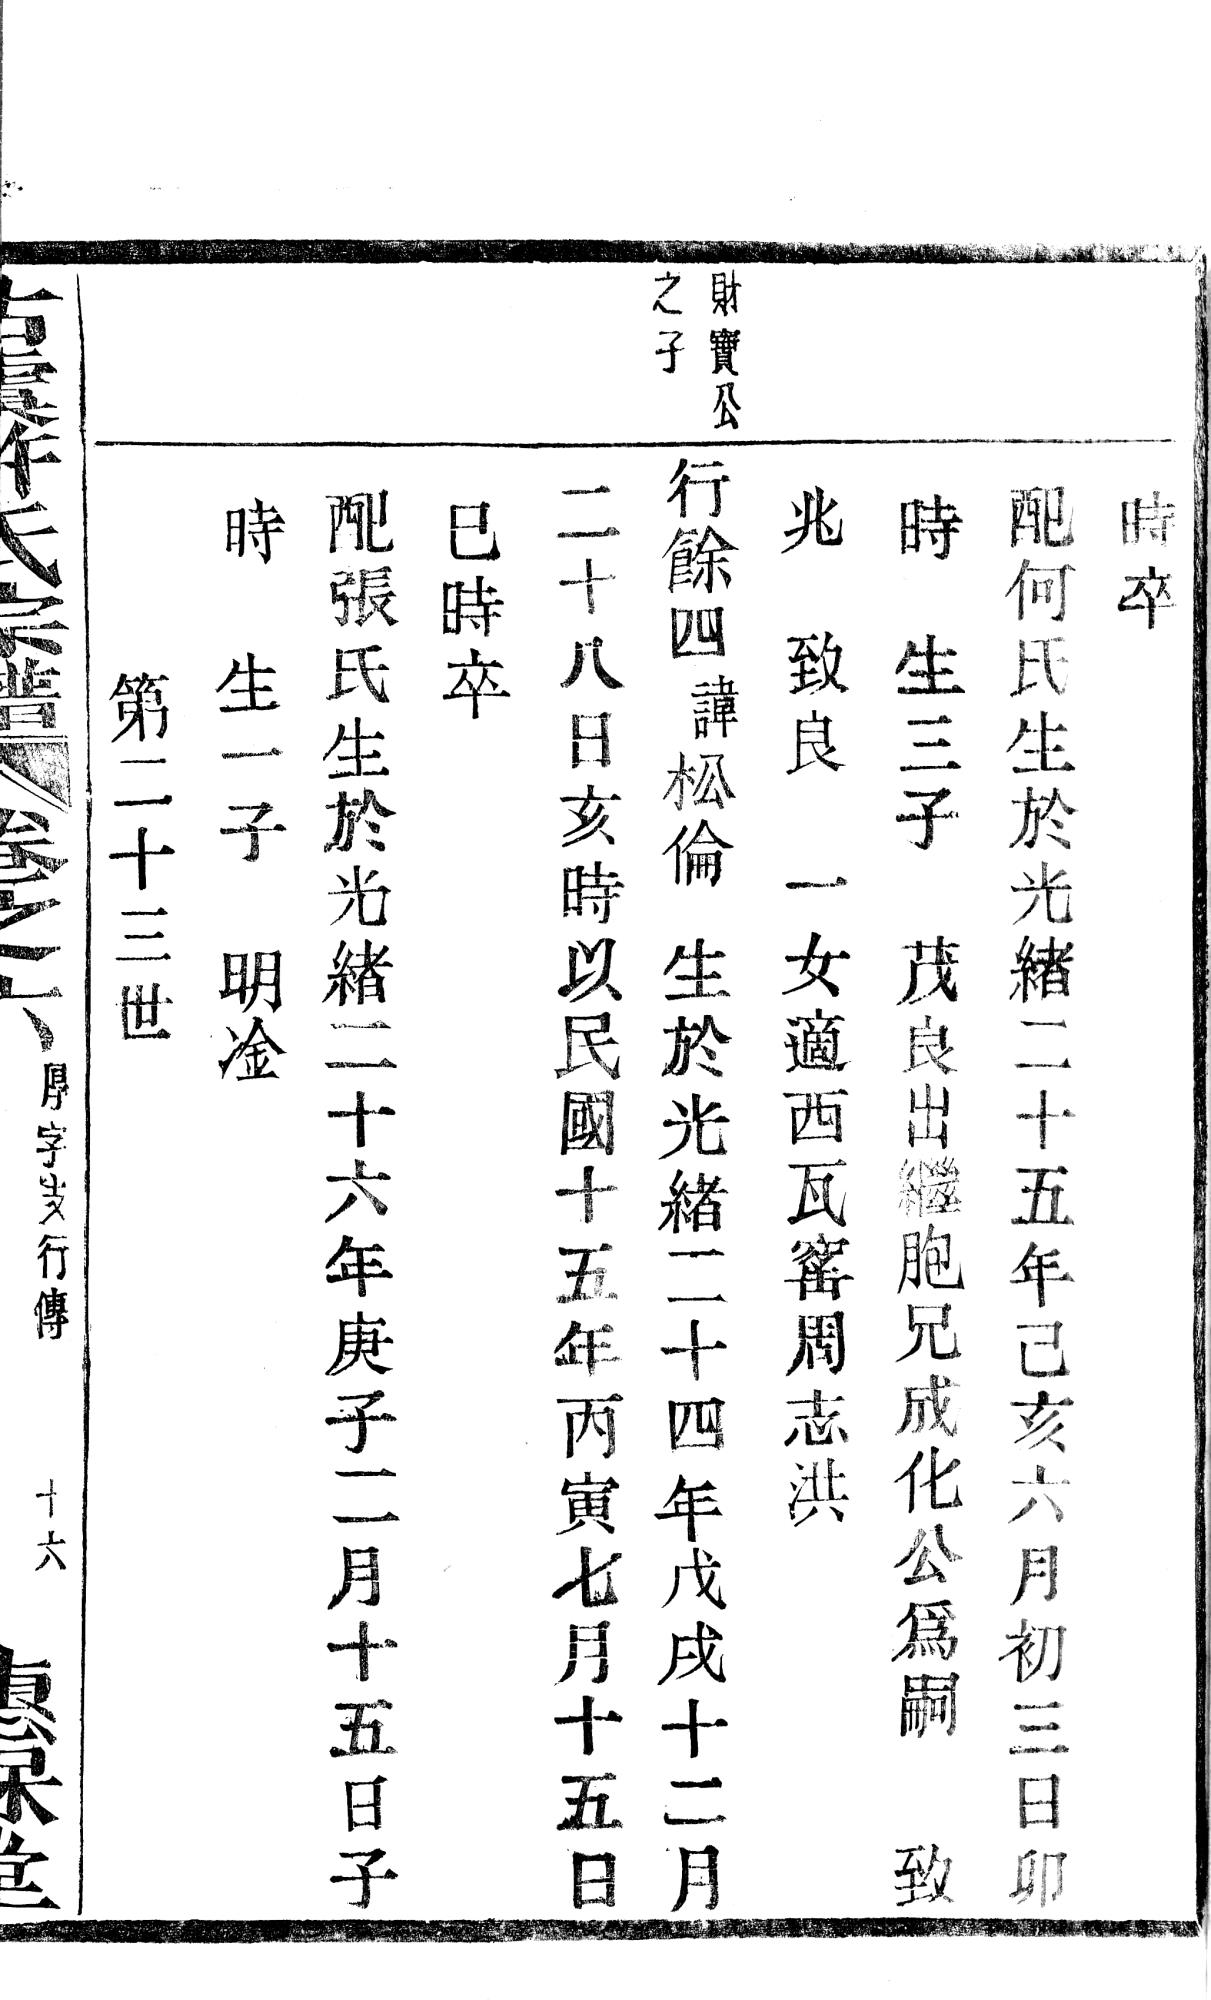 時卒
配何氏生於光緒二十五年己亥六月初三日卯
時　生三子　茂良出繼胞兄成化公爲嗣　致
兆　致良　一女適西瓦窰周志洪
財寶公
之子
行餘四諱松倫　生於光緒二十四年戊戌十二月
二十八日亥時以民國十五年丙寅七月十五日
巳時卒
配張氏生於光緒二十六年庚子二月十五日子
時　生一子　明淦
第二十三世
氏宗譜　卷之六　厚字支行傳　十六　堂